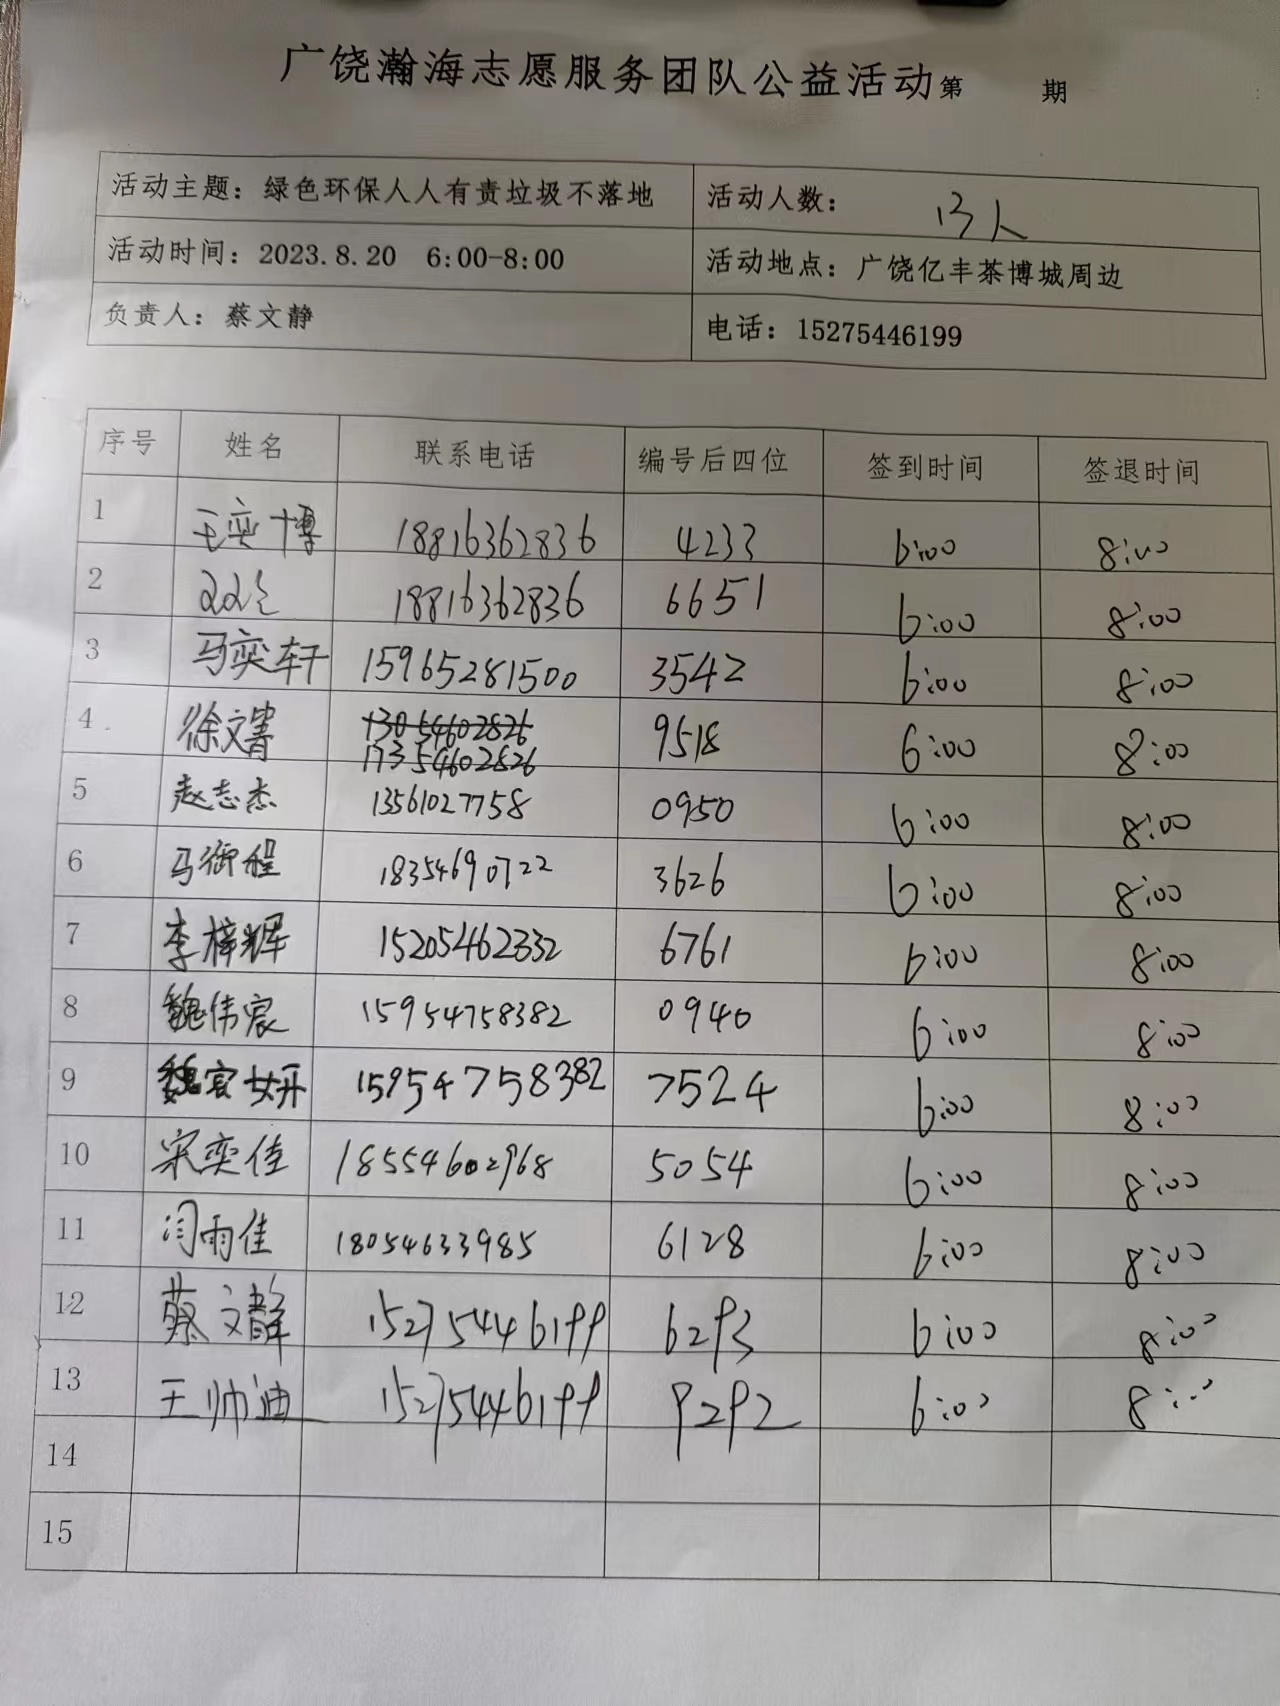 广饶瀚海志愿服务团队公益活动第 期
活动主题：绿色环保人人有责垃圾不落地 活动人数： 13人
活动时间：2023.8.20 6:00-8:00 活动地点：广饶亿丰茶博城周边
负责人：蔡文静 电话：15275446199
序号 姓名 联系电话 编号后四位 签到时间 签退时间
1 王奕博 18816362836 4233 6:00 8:00
2 18816362836 6651 6:00 8:00
3 马奕轩 15965281500 3542 6:00 8:00
4 徐文菁 13054602826 9518 6:00 8:00
17354602826
5 赵志杰 13561027758 0950 6:00 8:00
6 马御程 18354690722 3626 6:00 8:00
7 李梓辉 15205462332 6761 6:00 8:00
8 魏伟宸 15954758382 0940 6:00 8:00
9 魏宸妍 15954758382 7524 6:00 8:00
10 宋奕佳 18554602968 5054 6:00 8:00
11 闫雨佳 18054633985 6128 6:00 8:00
12 蔡文静 15275446199 6293 6:00 8:00
13 王帅迪 15275446199 9292 6:00 8:00
14
15